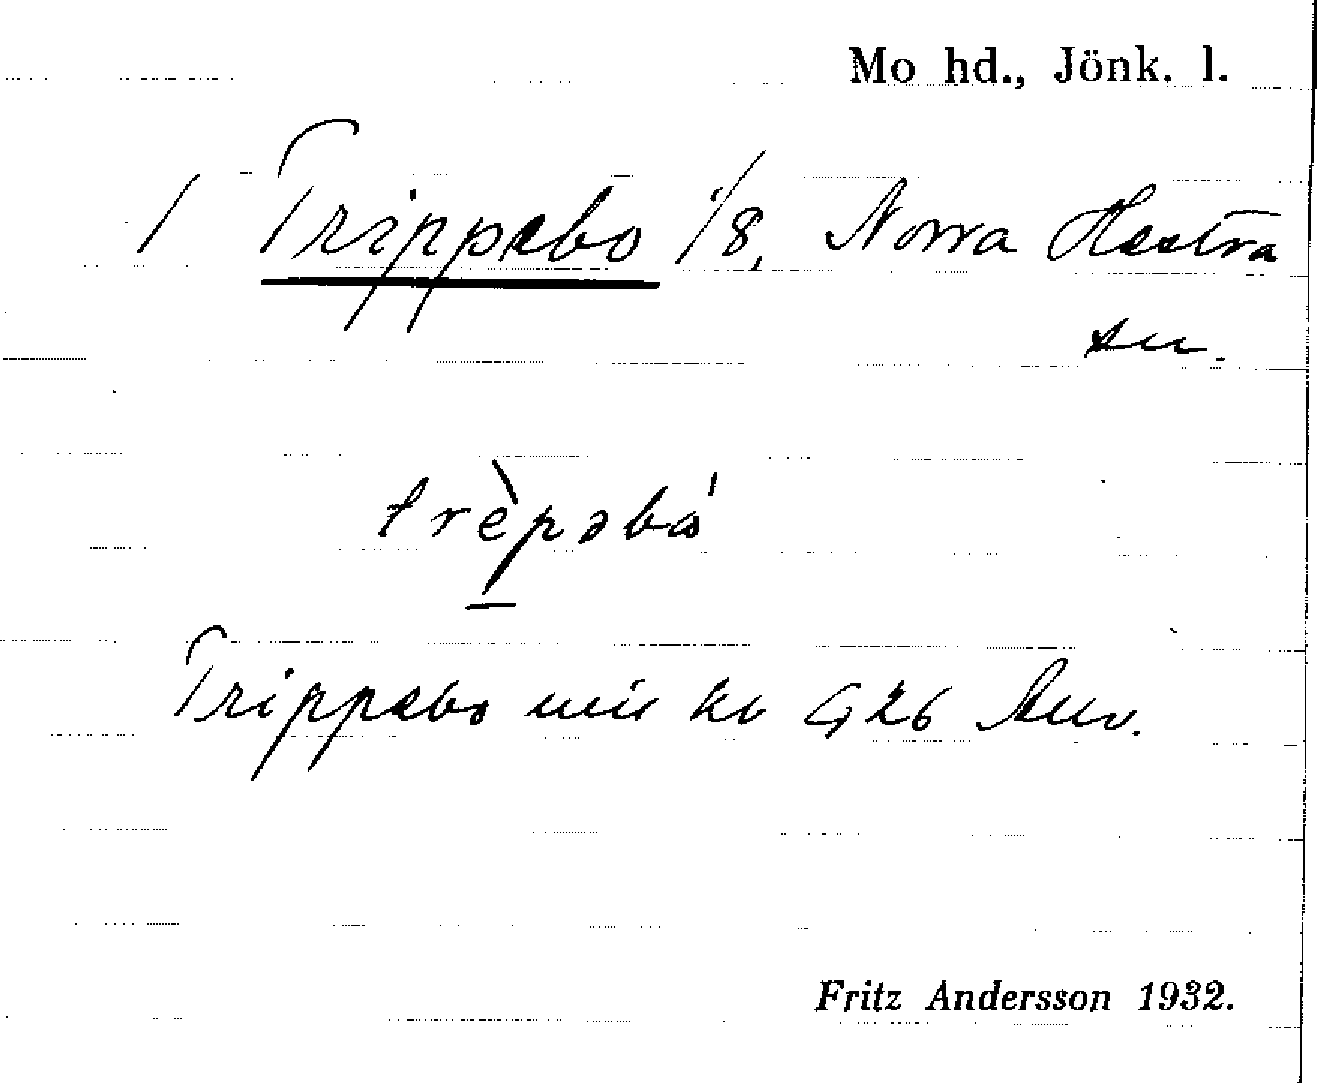 Mo hd., Jönk. l.
1 Trippebo 1/8, Norra Hestra
sn.
trèpəbó
Trippebo
Fritz Andersson 1932.